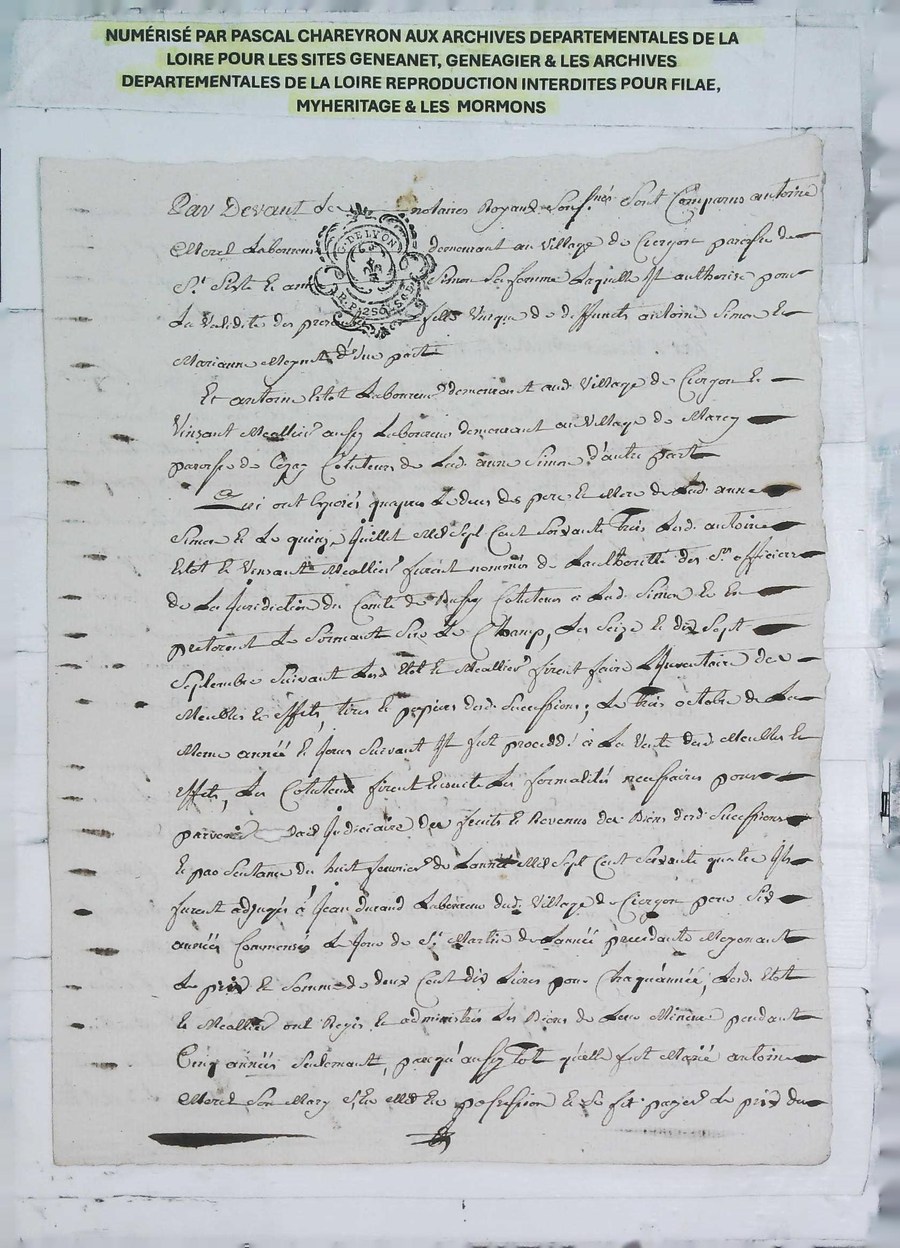 NUMÉRISÉ PAR PASCAL CHAREYRON AUX ARCHIVES DEPARTEMENTALES DE LA
LOIRE POUR LES SITES GENEANET, GENEAGIER & LES ARCHIVES
DEPARTEMENTALES DE LA LOIRE REPRODUCTION INTERDITES POUR FILAE,
MYHERITAGE & LES MORMONS
Par Devant notaires Royaux Sousnés. Sont Comparus antoine
Merel Laboureur demeurant au Village de Ciergon paroisse de
G. DE LYON
St. Sixte et Simon Sa femme Laquelle Il authorise pour
La Validité des fille Unique de deffuncts antoine Simon Et
Marianne d'Une part
Et antoine Etot Laboureur demeurant aud. Village de Ciergon Et
Vinsant Meallier aussy Laboureur demeurant au Village de Marcy
paroisse de Cezay Cotuteurs de Lad. anne Simon d'autre part
Qui ont Exposés qu'apres Le deces des pere et Mere de Lad. anne
Simon et Le quinze Juillet Mil Sept Cent Soixante trois Lesd. antoine
Etot Et Vinsant Meallier furent nommés de Lauthorité des Srs. officiers
de La Juridiction du Comté de Cotuteurs a Lad. Simon Et En
preterent Le Sermant Sur Le Champ, Les Seize Et dix Sept
Septembre Suivant Lesd. Etot Et Meallier firent faire L'Inventaire des
Meubles Et effets, titres Et papiers desd. Successions; Le trois octobre de La
Meme année Et Jours Suivant Il fut procedé a La Vente desd. Meubles Et
effets, Les Cotuteurs firent Ensuite Les formalités necessaires pour
parvenir Judiciaire des fruits Et Revenus des Biens desd. Successions
Et par Sentance du huit fevrier de Lannée Mil Sept Cent Soixante quatre Ils
furent adjugés à Jean Durand Laboureur dud. Village de Ciergon pour Six
années Commensés Le Jour de St. Martin de Lannée precedante Moyenant
Le prix Et Somme de deux Cent dix Livres pour Chaqu'année, Lesd. Etot
Et Meallier ont Regis Et administrés Les Biens de Leur Mineure pendant
Cinq années Seulemant, parcequ'aussy tot qu'elle fut Marié antoine
Merel Son Mary S'En Mit En possession Et Se fit payer Le prix du